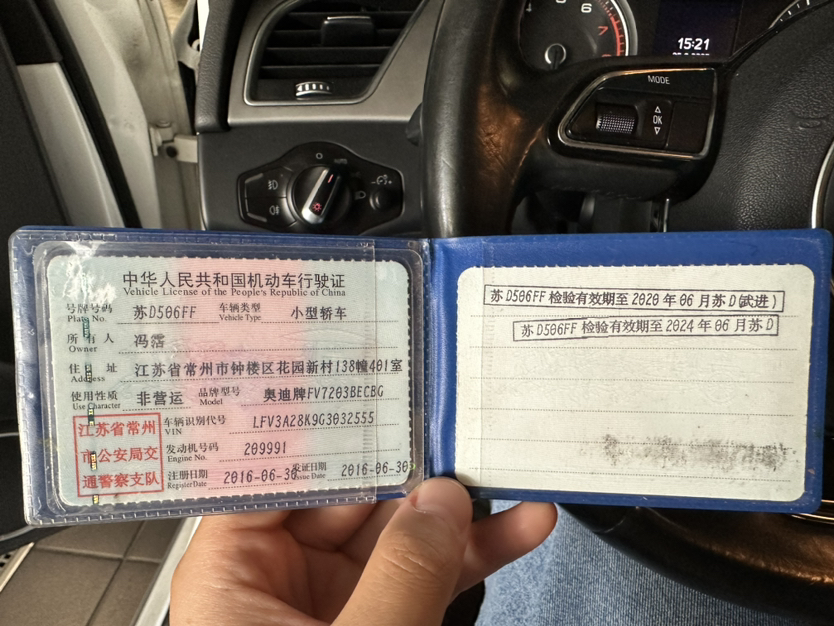 6
7
15:21
MODE
OK
中华人民共和国机动车行驶证
Vehicle License of the People's Republic of China
号牌号码 苏D506FF 车辆类型 小型轿车
Plate No. Vehicle Type
所有人 冯霑
Owner
住址 江苏省常州市钟楼区花园新村138幢401室
Address
使用性质 非营运 品牌型号 奥迪牌FV7203BECBG
Use Character Model
江苏省常州
市公安局交
通警察支队
车辆识别代号 LFV3A28K9G3032555
VIN
发动机号码 209991
Engine No.
注册日期 2016-06-30 发证日期 2016-06-30
Register Date Issue Date
苏D506FF 检验有效期至 2020 年 06 月苏 D(武进)
苏 D506FF 检验有效期至 2024 年 06 月苏 D